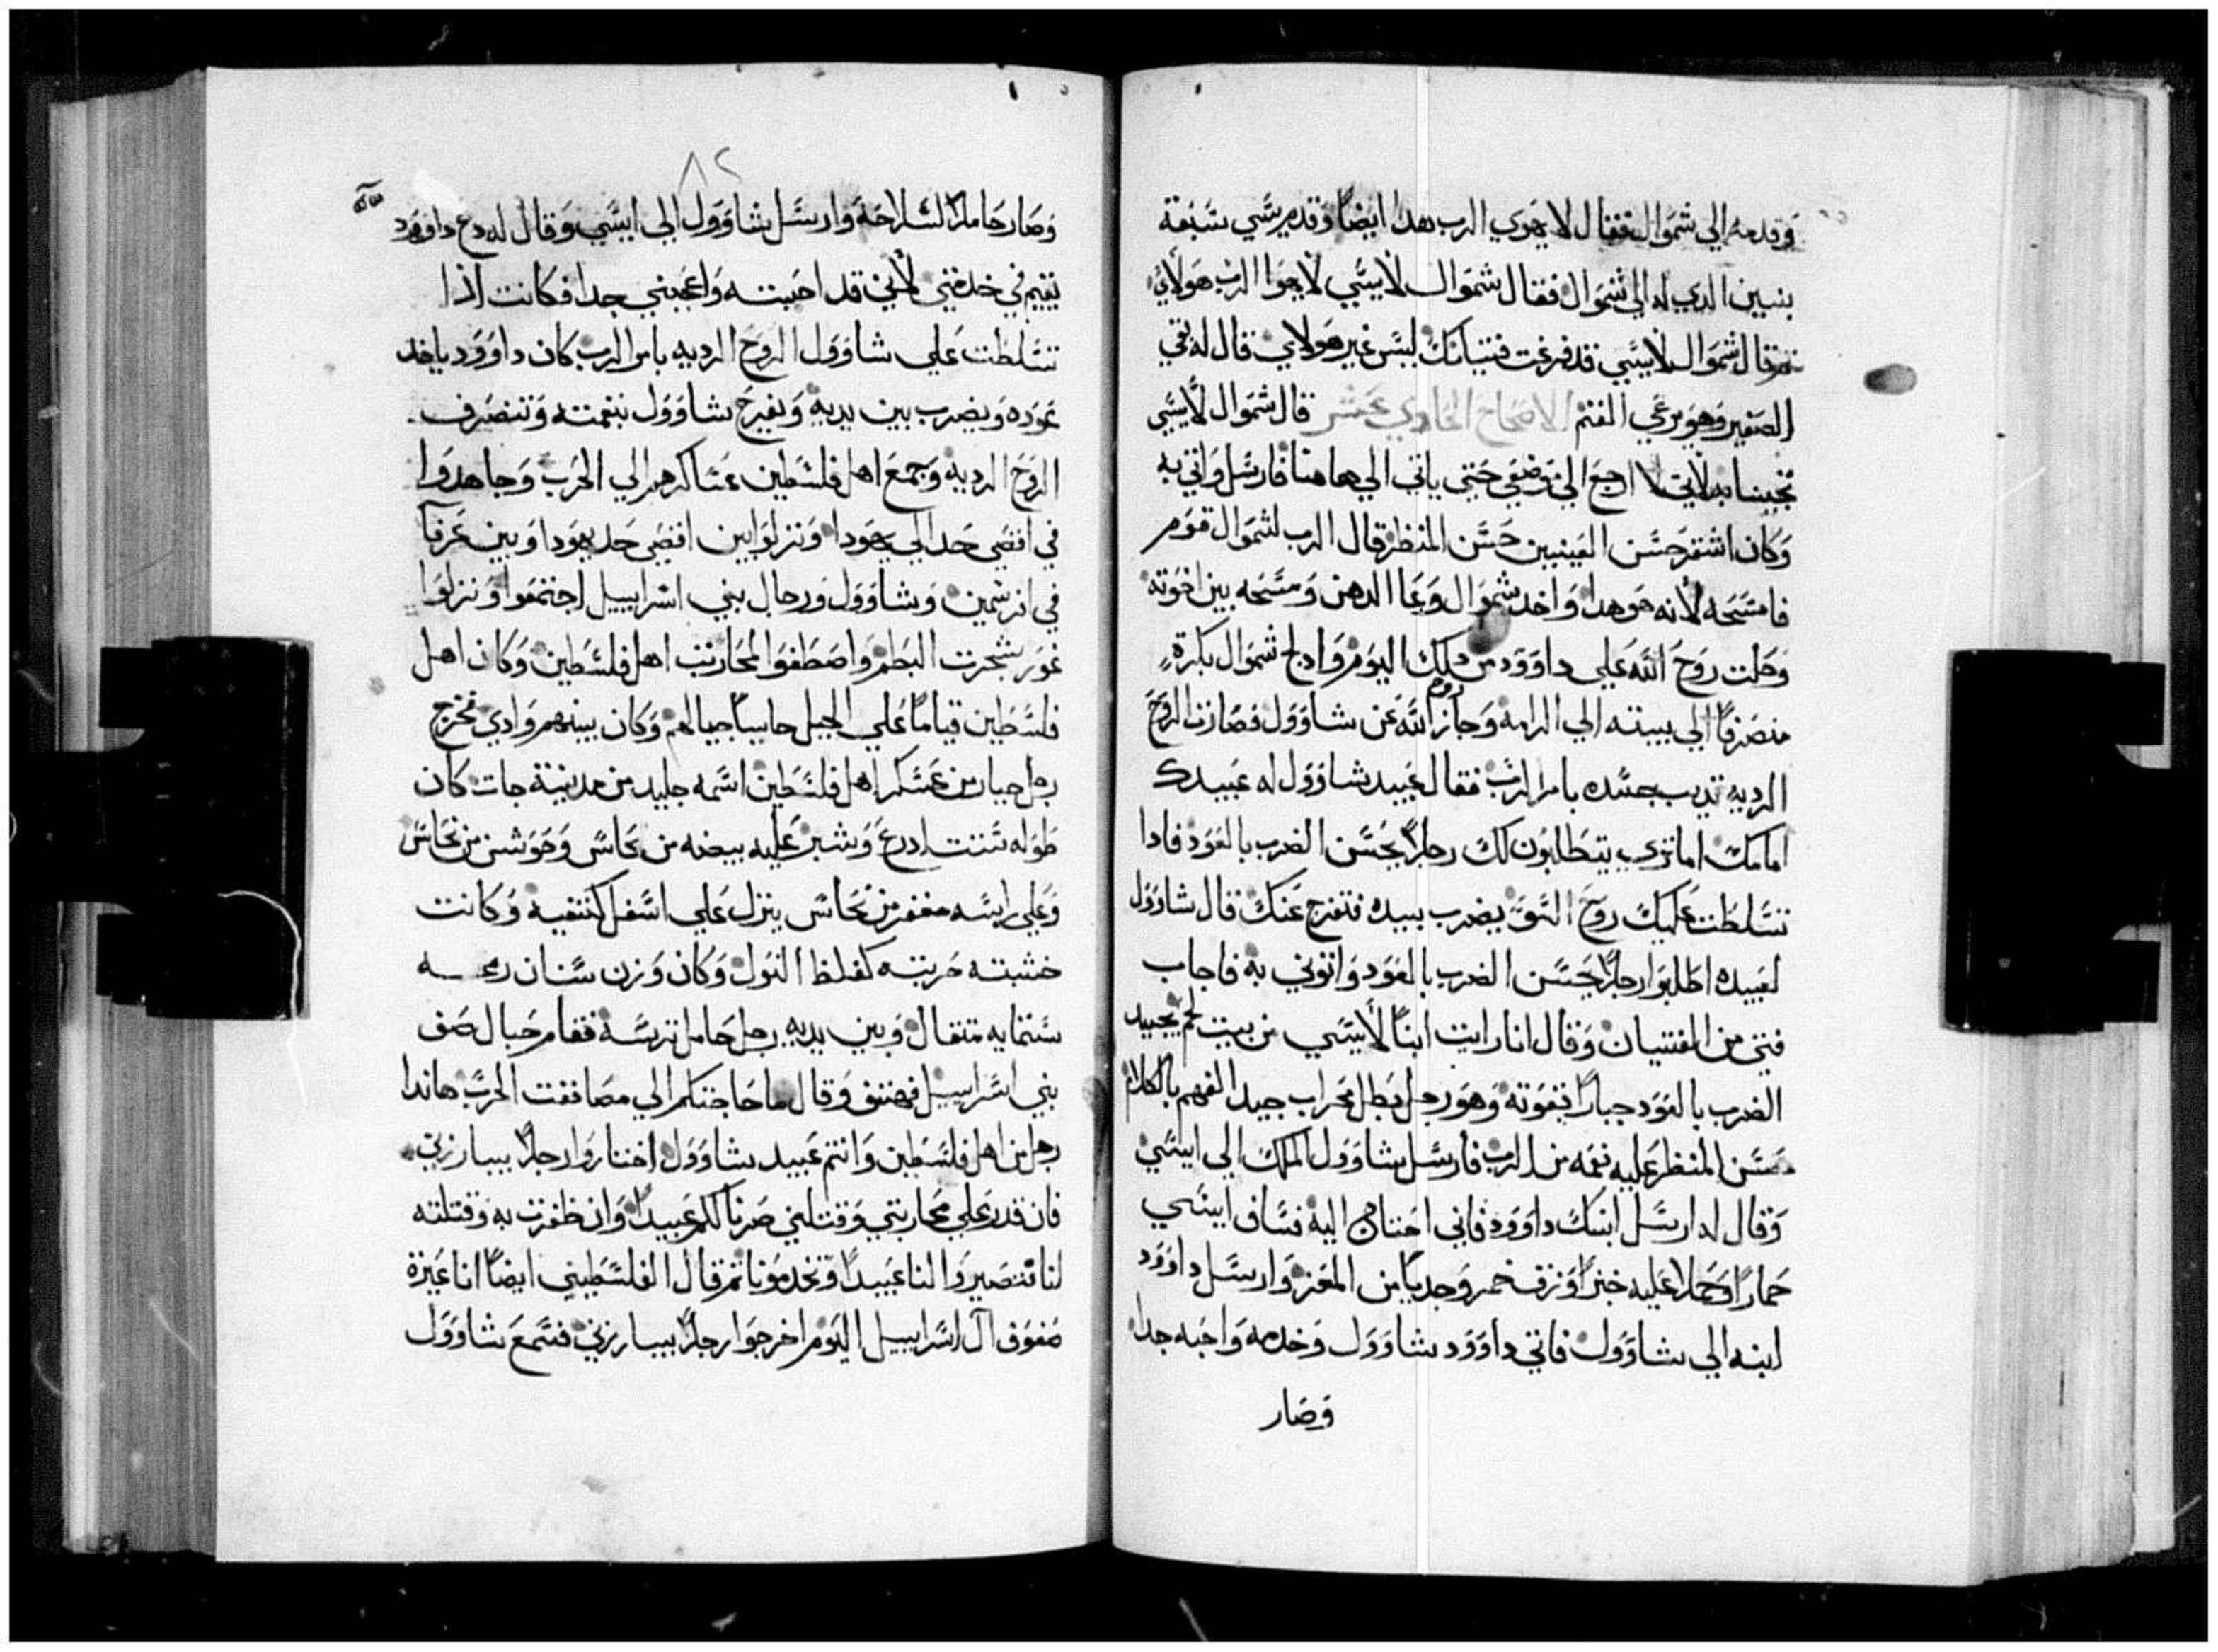 وقدمه الي شموال فقال لا يهوي الرب هدا ايضا وقدم يسي سبعة
بنيين الدي له الي شموال فقال شموال لايسي لا يهوا الرب هولاي
ثم قال شموال لايسي قد فرغت فتيانك ليس غير هولاي قال له بقي
الصغير وهو يرعي الغنم الاصحاح الحادي عشر قال شموال لايسي
تجيبنا به لاني لا ارجع الي موضعي حتي ياتي الي هاهنا فارسل واتي به
وكان اشقر حسن العينين حسن المنظر قال الرب لشموال قوم
فامسحه لانه هو هدا واخد شموال وعا الدهن ومسحه بين اخوته
وحلت روح الله علي داوود من دلك اليوم وادلج شموال بكرة
منصرفا الي بيته الي الرامه وجاز روح الله عن شاوول فصارت الروح
الرديه تديب جسده بامر الرب فقال عبيد شاوول له عبيدك
امامك اما تري يتطالبون لك رجلا يحسن الضرب بالعود فادا
تسلطت عليك روح السو يضرب بيده فتفرج عنك قال شاوول
لعبيده اطلبوا رجلا يحسن الضرب بالعود واتوني به فاجاب
فتي من الفتيان وقال انا رايت ابنا لايسي من بيت لحم يجيد
الضرب بالعود جبارا بقوته وهو رجل بطل محراب جيد الفهم بالكلام
حسن المنظر عليه نعمه من الرب فارسل شاوول الملك الي ايسي
وقال له ارسل ابنك داوود فاني احتاج اليه فساق ايسي
حمارا وحمل عليه خبزا وزق خمر وجديا من المعز وارسل داوود
ابنه الي شاوول فاتي داوود شاوول وخدمه واحبه جدا
وصار
٨٢
وصار حاملا لسلاحه وارسل شاوول الي ايسي وقال له دع داوود
يقيم في خدمتي لاني قد احببته واعجبني جدا فكانت اذا
تسلطت علي شاوول الروح الرديه بامر الرب كان داوود ياخد
عوده ويضرب بين يديه ويفرح شاوول بنغمته وتنصرف
الروح الرديه وجمع اهل فلسطين عساكرهم الي الحرب وجاهدوا
في اقصي حد الي يهودا ونزلوا بين اقصي حد يهودا وبين عرقا
في افرسمين وشاوول ورجال بني اسراييل اجتمعوا ونزلوا
غور شجرت البطم واصطفوا لمحاربت اهل فلسطين وكان اهل
فلسطين قياما علي الجبل حابسا حيالهم وكان بينهم وادي فخرج
رجل جبار من عسكر اهل فلسطين اسمه جليد من مدينة جات كان
طوله ستت ادرع وشبر عليه بيضه من نحاس وجوشن من نحاس
وعلي راسه مغفر من نحاس ينزل علي اسفل كتفيه وكانت
خشبته حربته كغلظ النول وكان وزن سنان رمحه
ستمايه متقال وبين يديه رجل حامل ترسه فقام حيال صف
بني اسراييل فهتف وقال ما حاجتكم الي مصاففت الحرب هاندا
رجل من اهل فلسطين وانتم عبيد شاوول اختاروا رجلا يبارزني
فان قدر علي محاربتي وقتلني صرنا لكم عبيدا وان ظفرت به وقتلته
لنا تصيروا لنا عبيدا وتخدمونا ثم قال الفلسطيني ايضا انا عيرة
صفوف ال اسراييل اليوم اخرجوا رجلا يبارزني فسمع شاوول